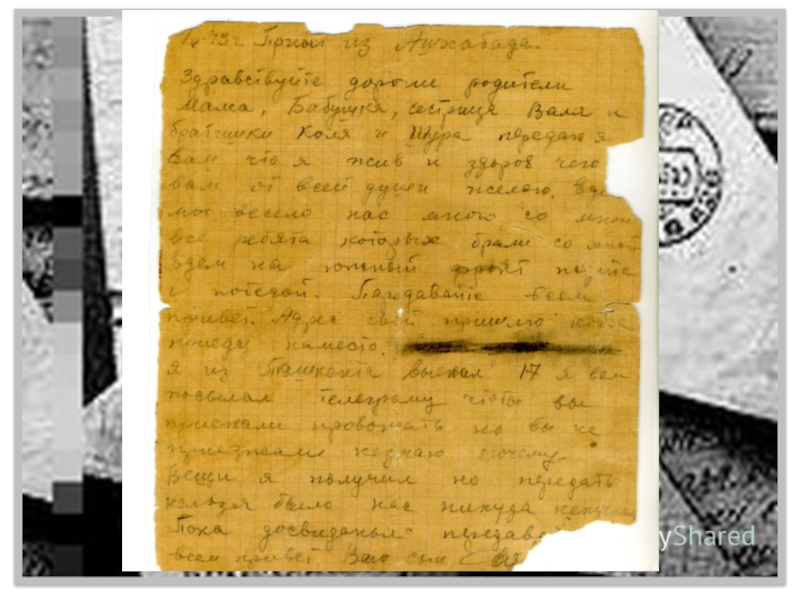 Привет из Ашхабада.
Здравствуйте дорогие родители
Мама, Бабушка, сестрица Валя и
братишки Коля и Шура передаю я
Вам что я жив и здоров чего
вам от всей души желаю. Едем
мы весело нас много со мной
все ребята которые брали со мной
Едем на южный фронт
с победой. Передавайте всем
привет. Адрес свой пришлю когда
приеду наместо.
я из Ташкента выехал 17 я вам
посылал телеграму чтобы вы
приехали провожать но вы не
приезжали незнаю почему.
Вещи я получил но передать
нельзя было нас никуда
Пока досвиданья передавай
всем привет. Ваш сын
yShared